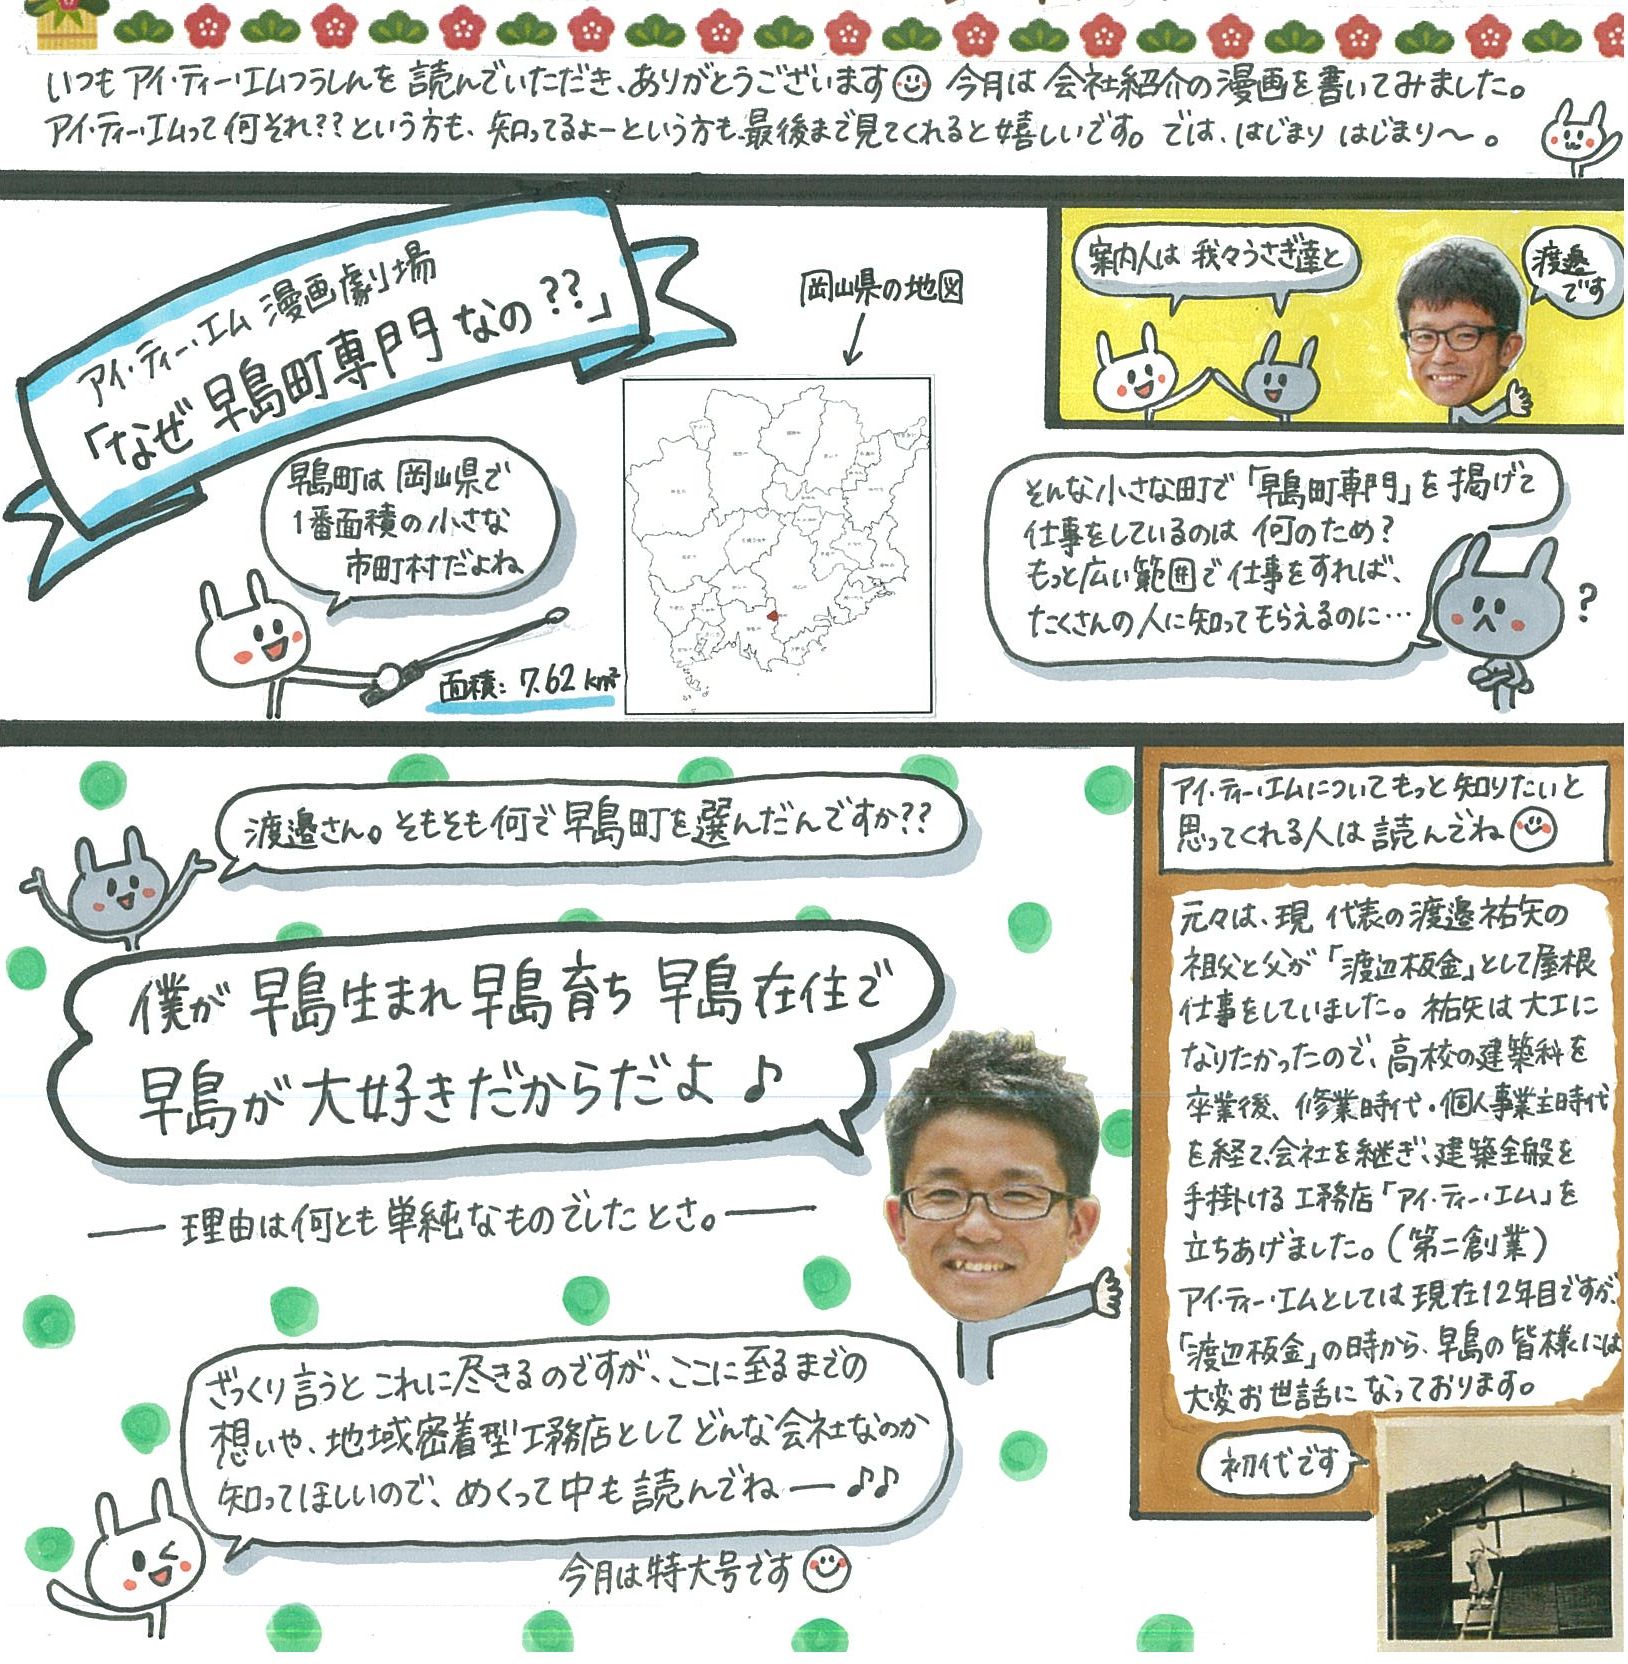 いつもアイ・ティー・エムつうしんを読んでいただき、ありがとうございます 今月は会社紹介の漫画を書いてみました。
アイ・ティー・エムって何それ??という方も、知ってるよーという方も最後まで見てくれると嬉しいです。では、はじまりはじまり〜。
アイ・ティー・エム 漫画劇場
「なぜ早島町専門なの??」
早島町は岡山県で
1番面積の小さな
市町村だよね
面積: 7.62 km²
岡山県の地図
案内人は 我々うさぎ達と
渡邉
です
そんな小さな町で「早島町専門」を掲げて
仕事をしているのは 何のため?
もっと広い範囲で仕事をすれば、
たくさんの人に知ってもらえるのに…
?
渡邉さん。そもそも何で早島町を選んだんですか??
僕が 早島生まれ 早島育ち 早島在住で
早島が大好きだからだよ♪
―― 理由は何とも単純なものでしたとさ。――
ざっくり言うとこれに尽きるのですが、ここに至るまでの
想いや、地域密着型工務店としてどんな会社なのか
知ってほしいので、めくって中も読んでねー♪♪
今月は特大号です
アイ・ティー・エムについてもっと知りたいと
思ってくれる人は読んでね
元々は、現 代表の渡邉祐矢の
祖父と父が「渡辺板金」として屋根
仕事をしていました。祐矢は大工に
なりたかったので、高校の建築科を
卒業後、修業時代・個人事業主時代
を経て、会社を継ぎ、建築全般を
手掛ける工務店「アイ・ティー・エム」を
立ちあげました。(第二創業)
アイ・ティー・エムとしては現在12年目ですが、
「渡辺板金」の時から、早島の皆様には
大変お世話になっております。
初代です